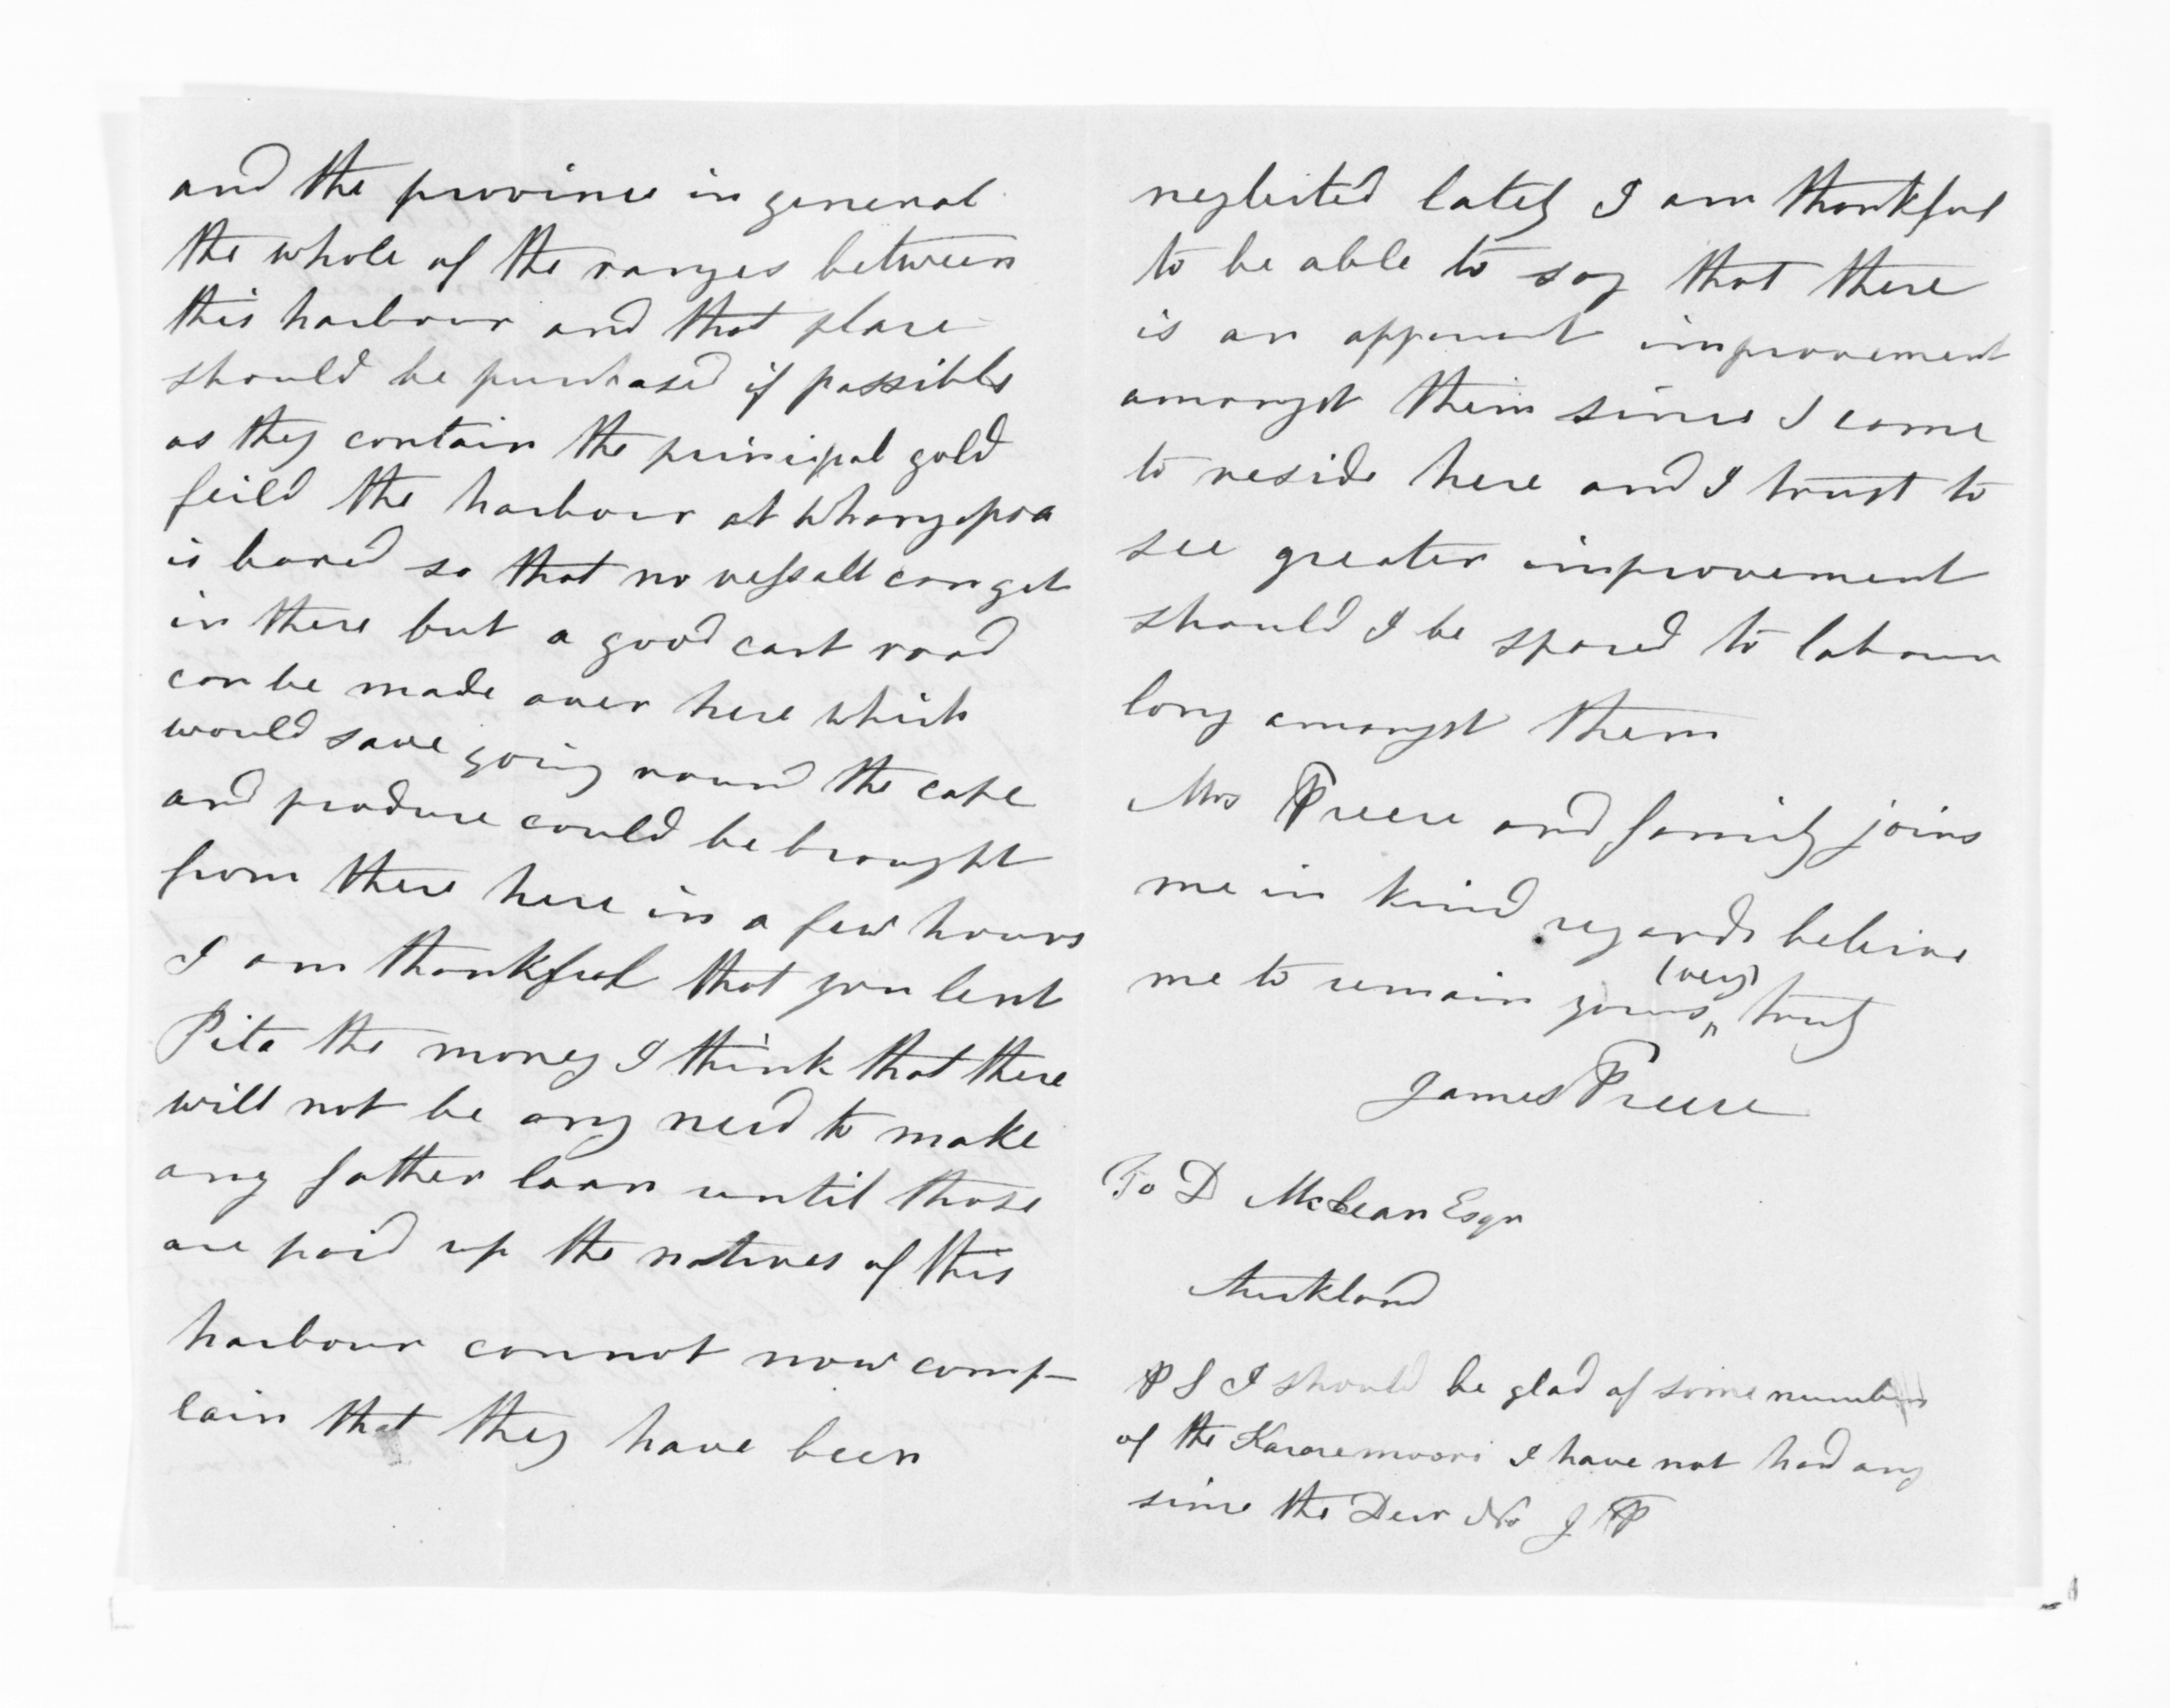 and the province in general
the whole of the ranges between
this harbour and that place
should be purchased if possible
as they contain the principal gold
feild the harbour at Whangapoa
is bared so that no vessall can get
in there but a good cart road
can be made over here which
would save going round the cape
and produce could be brought
from there here in a few hours
I am thankful that you lent
Pita the money I think that there
will not be any need to make
any father loan until those
are paid up the natives of this
harbour cannot now comp-
lain that they have been
neglected lately I am thankful
to be able to say that there
is an apparent improvement
amongst them since I came
to reside here and I trust to
see greater improvement
should I be spared to labour
long amongst them
Mrs Preece and family joins
me in kind regards beleive
me to remain yours (very) truly
James Preece
To D McLean Esqr
Auckland
P S I should be glad of some numbers
of the Kareremaori I have not had any
since the Decr No J P